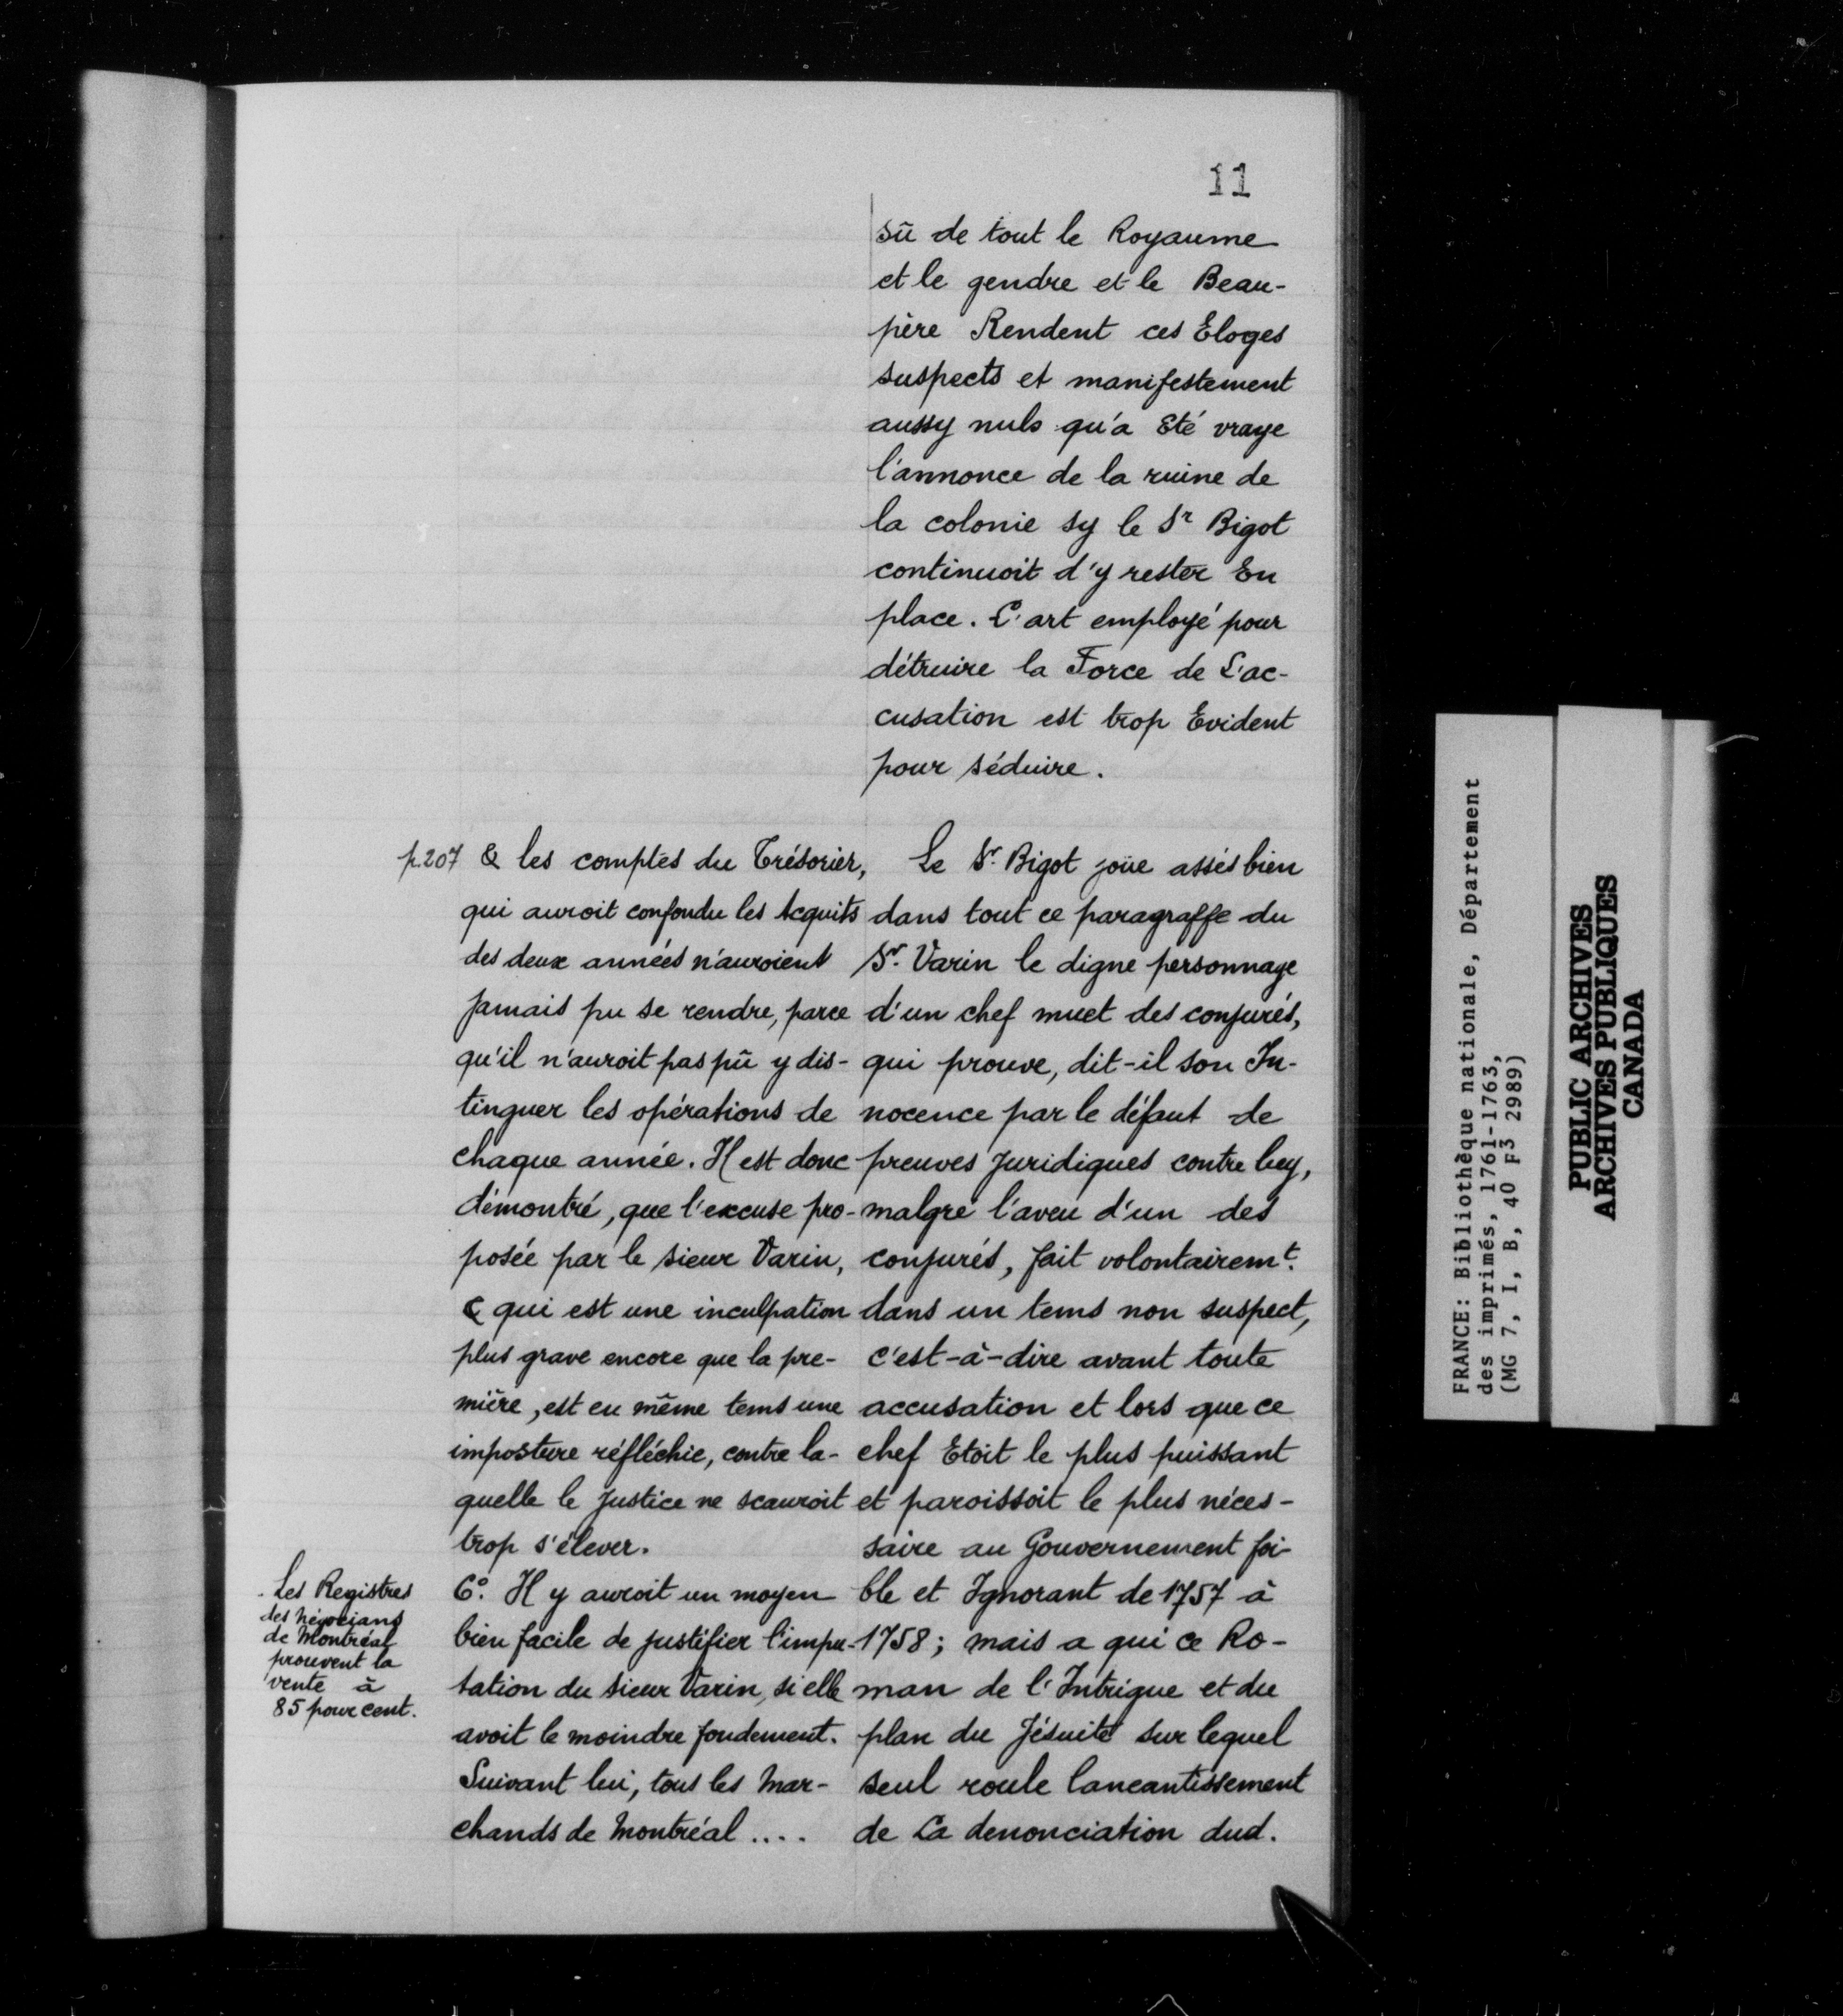 11
sû de tout le Royaume
et le gendre et le Beau-
père Rendent ces Eloges
suspects et manifestement
aussy nuls qu'a Eté vraye
l'annonce de la ruine de
la colonie sy le Sr Bigot
continuoit d'y rester En
place. L'art employé pour
détruire la Force de L'ac-
cusation est trop Evident
pour séduire.
p.207
& les comptes du Trésorier,
qui auroit confondu les Acquits
des deux années n'auroient
jamais pu se rendre, parce
qu'il n'auroit pas pû y dis-
tinguer les opérations de
chaque année. Il est donc
démontré, que l'excuse pro-
posée par le sieur Varin,
& qui est une inculpation
plus grave encore que la pre-
mière, est en même tems une
imposture réfléchie, contre la-
quelle le justice ne scauroit
trop s'élever.
Les Registres
des négocians
de Montréal
prouvent la
vente à
85 pour cent.
6º. Il y auroit un moyen
bien facile de justifier l'impu-
tation du sieur Varin, si elle
avoit le moindre fondement.
Suivant lui, tous les Mar-
chands de Montréal ....
Le Sr. Bigot joüe assés bien
dans tout ce paragraffe du
Sr. Varin le digne personnage
d'un chef muet des conjurés,
qui prouve, dit-il son In-
nocence par le défaut de
preuves juridiques contre luy,
malgré l'aveu d'un des
conjurés, fait volontairemt.
dans un tems non suspect,
c'est-à-dire avant toute
accusation et lors que ce
chef Etoit le plus puissant
et paroissoit le plus néces-
saire au Gouvernement foi-
ble et Ignorant de 1757 à
1758; mais a qui ce Ro-
man de l'Intrigue et du
plan du Jésuite sur lequel
seul roule laneantissement
de La denonciation dud.
FRANCE: Bibliothèque nationale, Département
des imprimés, 1761-1763,
(MG 7, I, B, 40 F3 2989)
PUBLIC ARCHIVES
ARCHIVES PUBLIQUES
CANADA